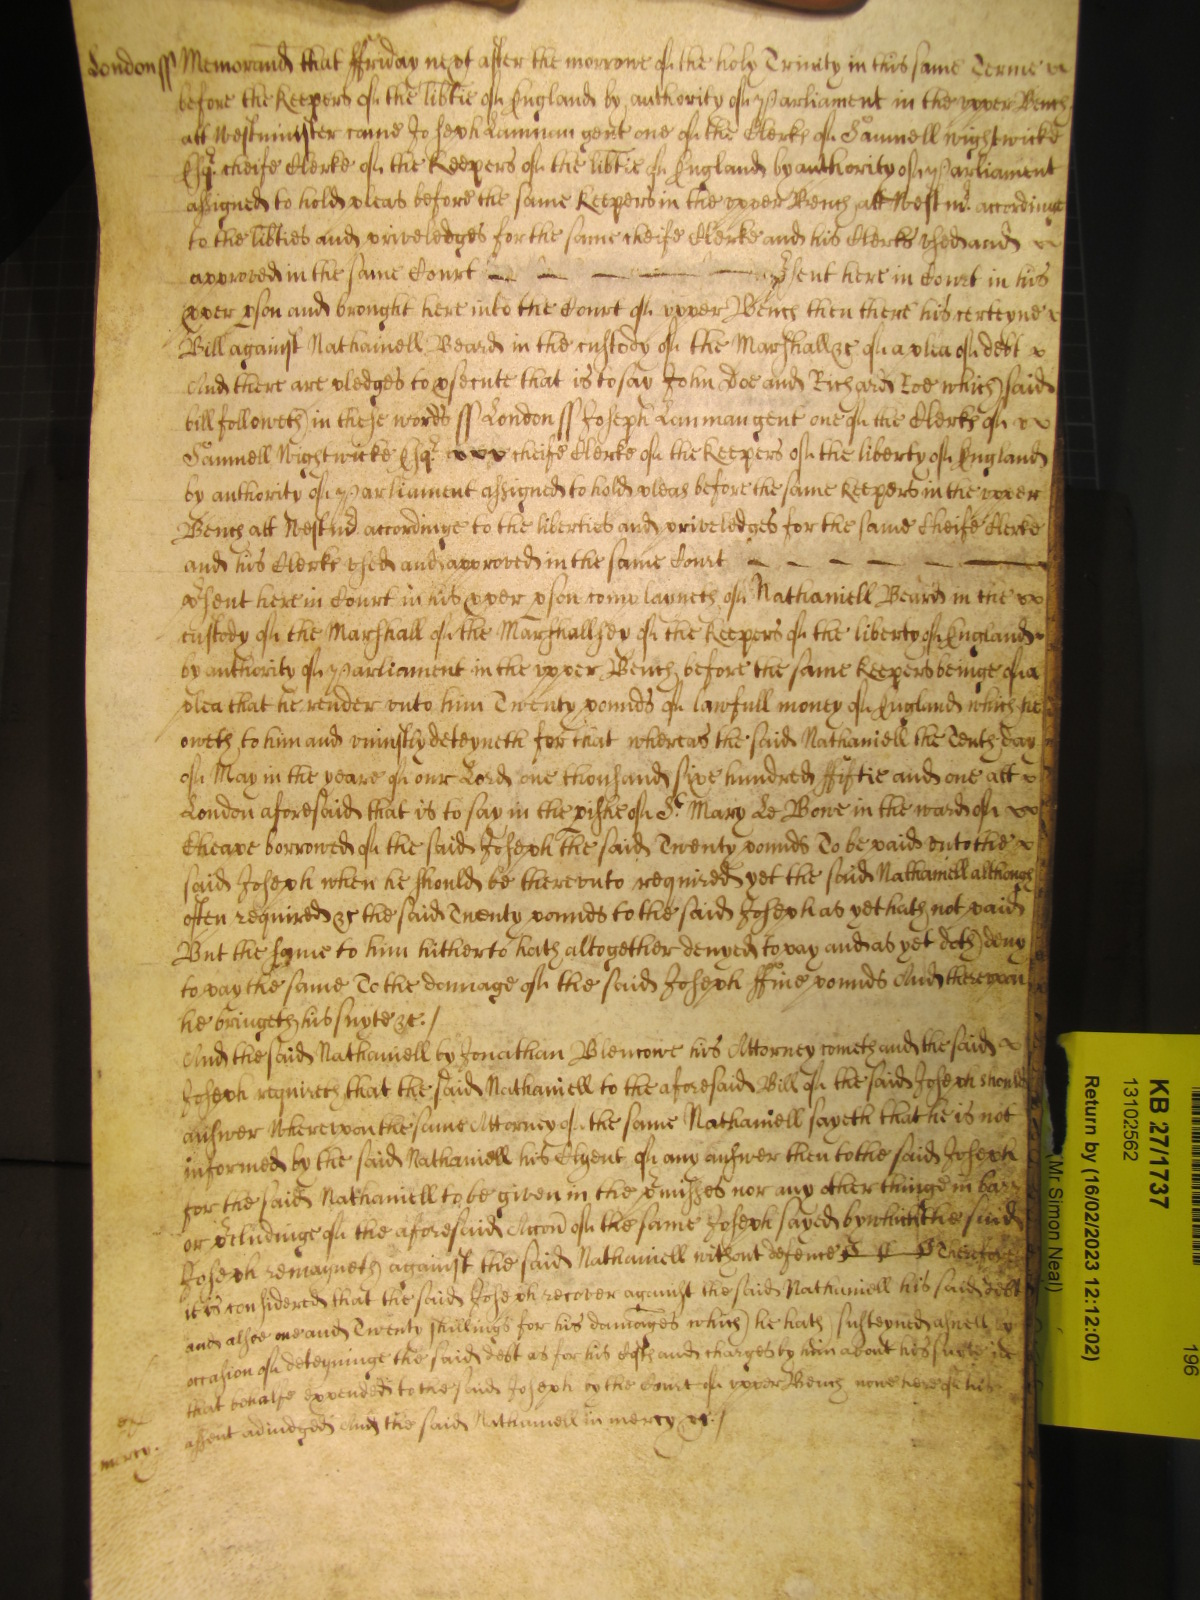 London ss Memorand that ffriday next after the morrowe of the holy Trinity in this same Terme
before the Keepers of the libtie of England by authority of Parliament in the upper Bench
att Westminster came Joseph Lanman gent one of the Clerks of Samuell Wightwicke
Esqr cheife Clerke of the Keepers of the libtie of England by authority of Parliament
assigned to hold pleas before the same Keepers in the upper Bench att Westm accordinge
to the libties and priveledges for the same cheife Clerke and his Clerks used and
approved in the same Court psent here in Court in his
pper pson and brought here into the Court of upper Bench then there his certeyne
Bill against Nathaniell Beard in the custody of the Marshall &c of a plea of debt
And there are pledges to psecute that is to say John Doe and Richard Roe which said
bill followeth in these words ss London ss Joseph Lanman gent one of the Clerks of
Samuell Wightwicke Esqr cheife Clerke of the Keepers of the liberty of England
by authority of Parliament assigned to hold pleas before the same Keepers in the upper
Bench att Westm accordinge to the liberties and priveledges for the same Cheife Clerke
and his Clerks used and approved in the same Court
psent here in Court in his pper pson complayneth of Nathaniell Beard in the
custody of the Marshall of the Marshallsey of the Keepers of the liberty of England
by authority of Parliament in the upper Bench before the same Keepers beinge of a
plea that he render unto him Twenty pounds of lawfull money of England which he
oweth to him and uniustly deteyneth for that whereas the said Nathaniell the Tenth day
of May in the yeare of our Lord one thousand sixe hundred ffiftie and one att
London aforesaid that is to say in the pishe of St Mary Le Bowe in the ward of
Cheape borrowed of the said Joseph the said Twenty pounds To be paid unto the
said Joseph when he should be thereunto required yet the said Nathaniell although
often required &c the said Twenty pounds to the said Joseph as yet hath not paid
But the same to him hitherto hath altogether denyed to pay and as yet doth deny
to pay the same To the damage of the said Joseph ffive pounds And thereupon
he bringeth his suyte &c./
And the said Nathaniell by Jonathan Blencowe his Attorney cometh and the said
Joseph requireth that the said Nathaniell to the aforesaid Bill of the said Joseph should
answer Whereupon the same Attorney of the same Nathaniell sayeth that he is not
informed by the said Nathaniell his Clyent of any answer then to the said Joseph
for the said Nathaniell to be given in the pmisses nor any other thinge in barr
or pcludinge of the aforesaid Accon of the same Joseph sayed by which the said
Joseph remayneth against the said Nathaniell without defence Therefore
it is considered that the said Joseph recover against the said Nathaniell his said debt
and alsoe one and Twenty shillings for his damages which he hath susteyned aswell by
occasion of deteyninge the said debt as for his costs and charges by him about his suyte in
that behalfe expended to the said Joseph by the Court of upper Bench nowe here of his
assent adiudged And the said Nathaniell in mercy &c./
mercy.
KB 27/1737
13102562
Return by (16/02/2023 12:12:02)
(Mr Simon Neal)
196